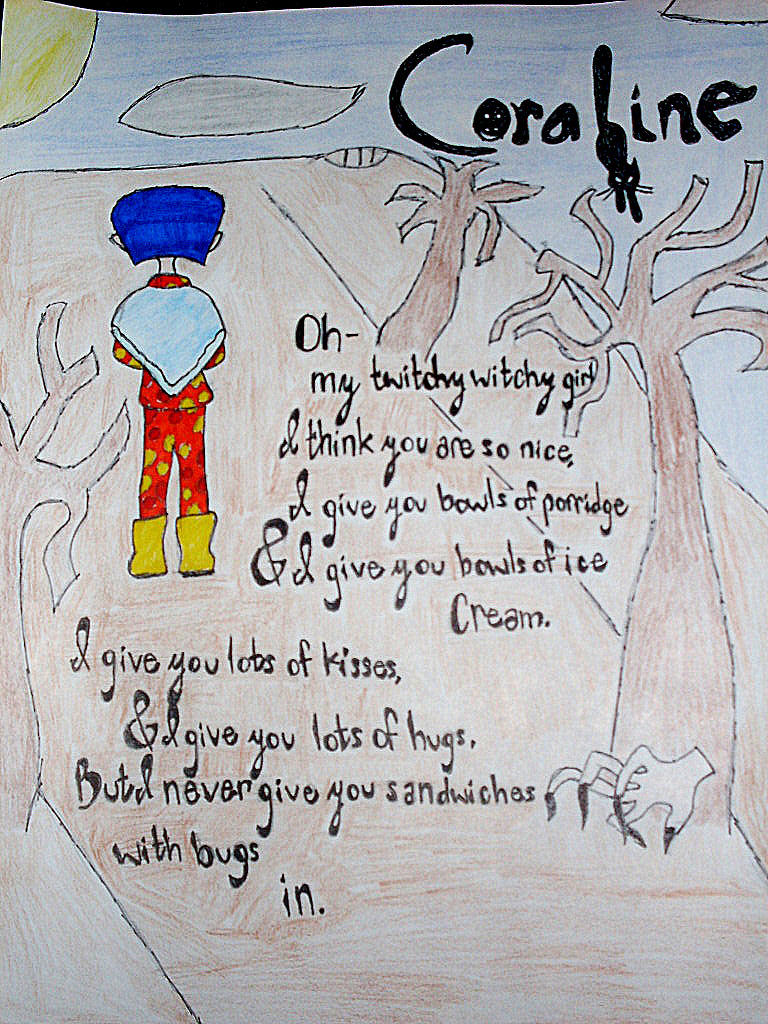 Coraline
Oh-
my twitchy witchy girl
I think you are so nice,
I give you bowls of porridge
& I give you bowls of ice
Cream.
I give you lots of kisses,
& I give you lots of hugs,
But I never give you sandwiches
with bugs
in.